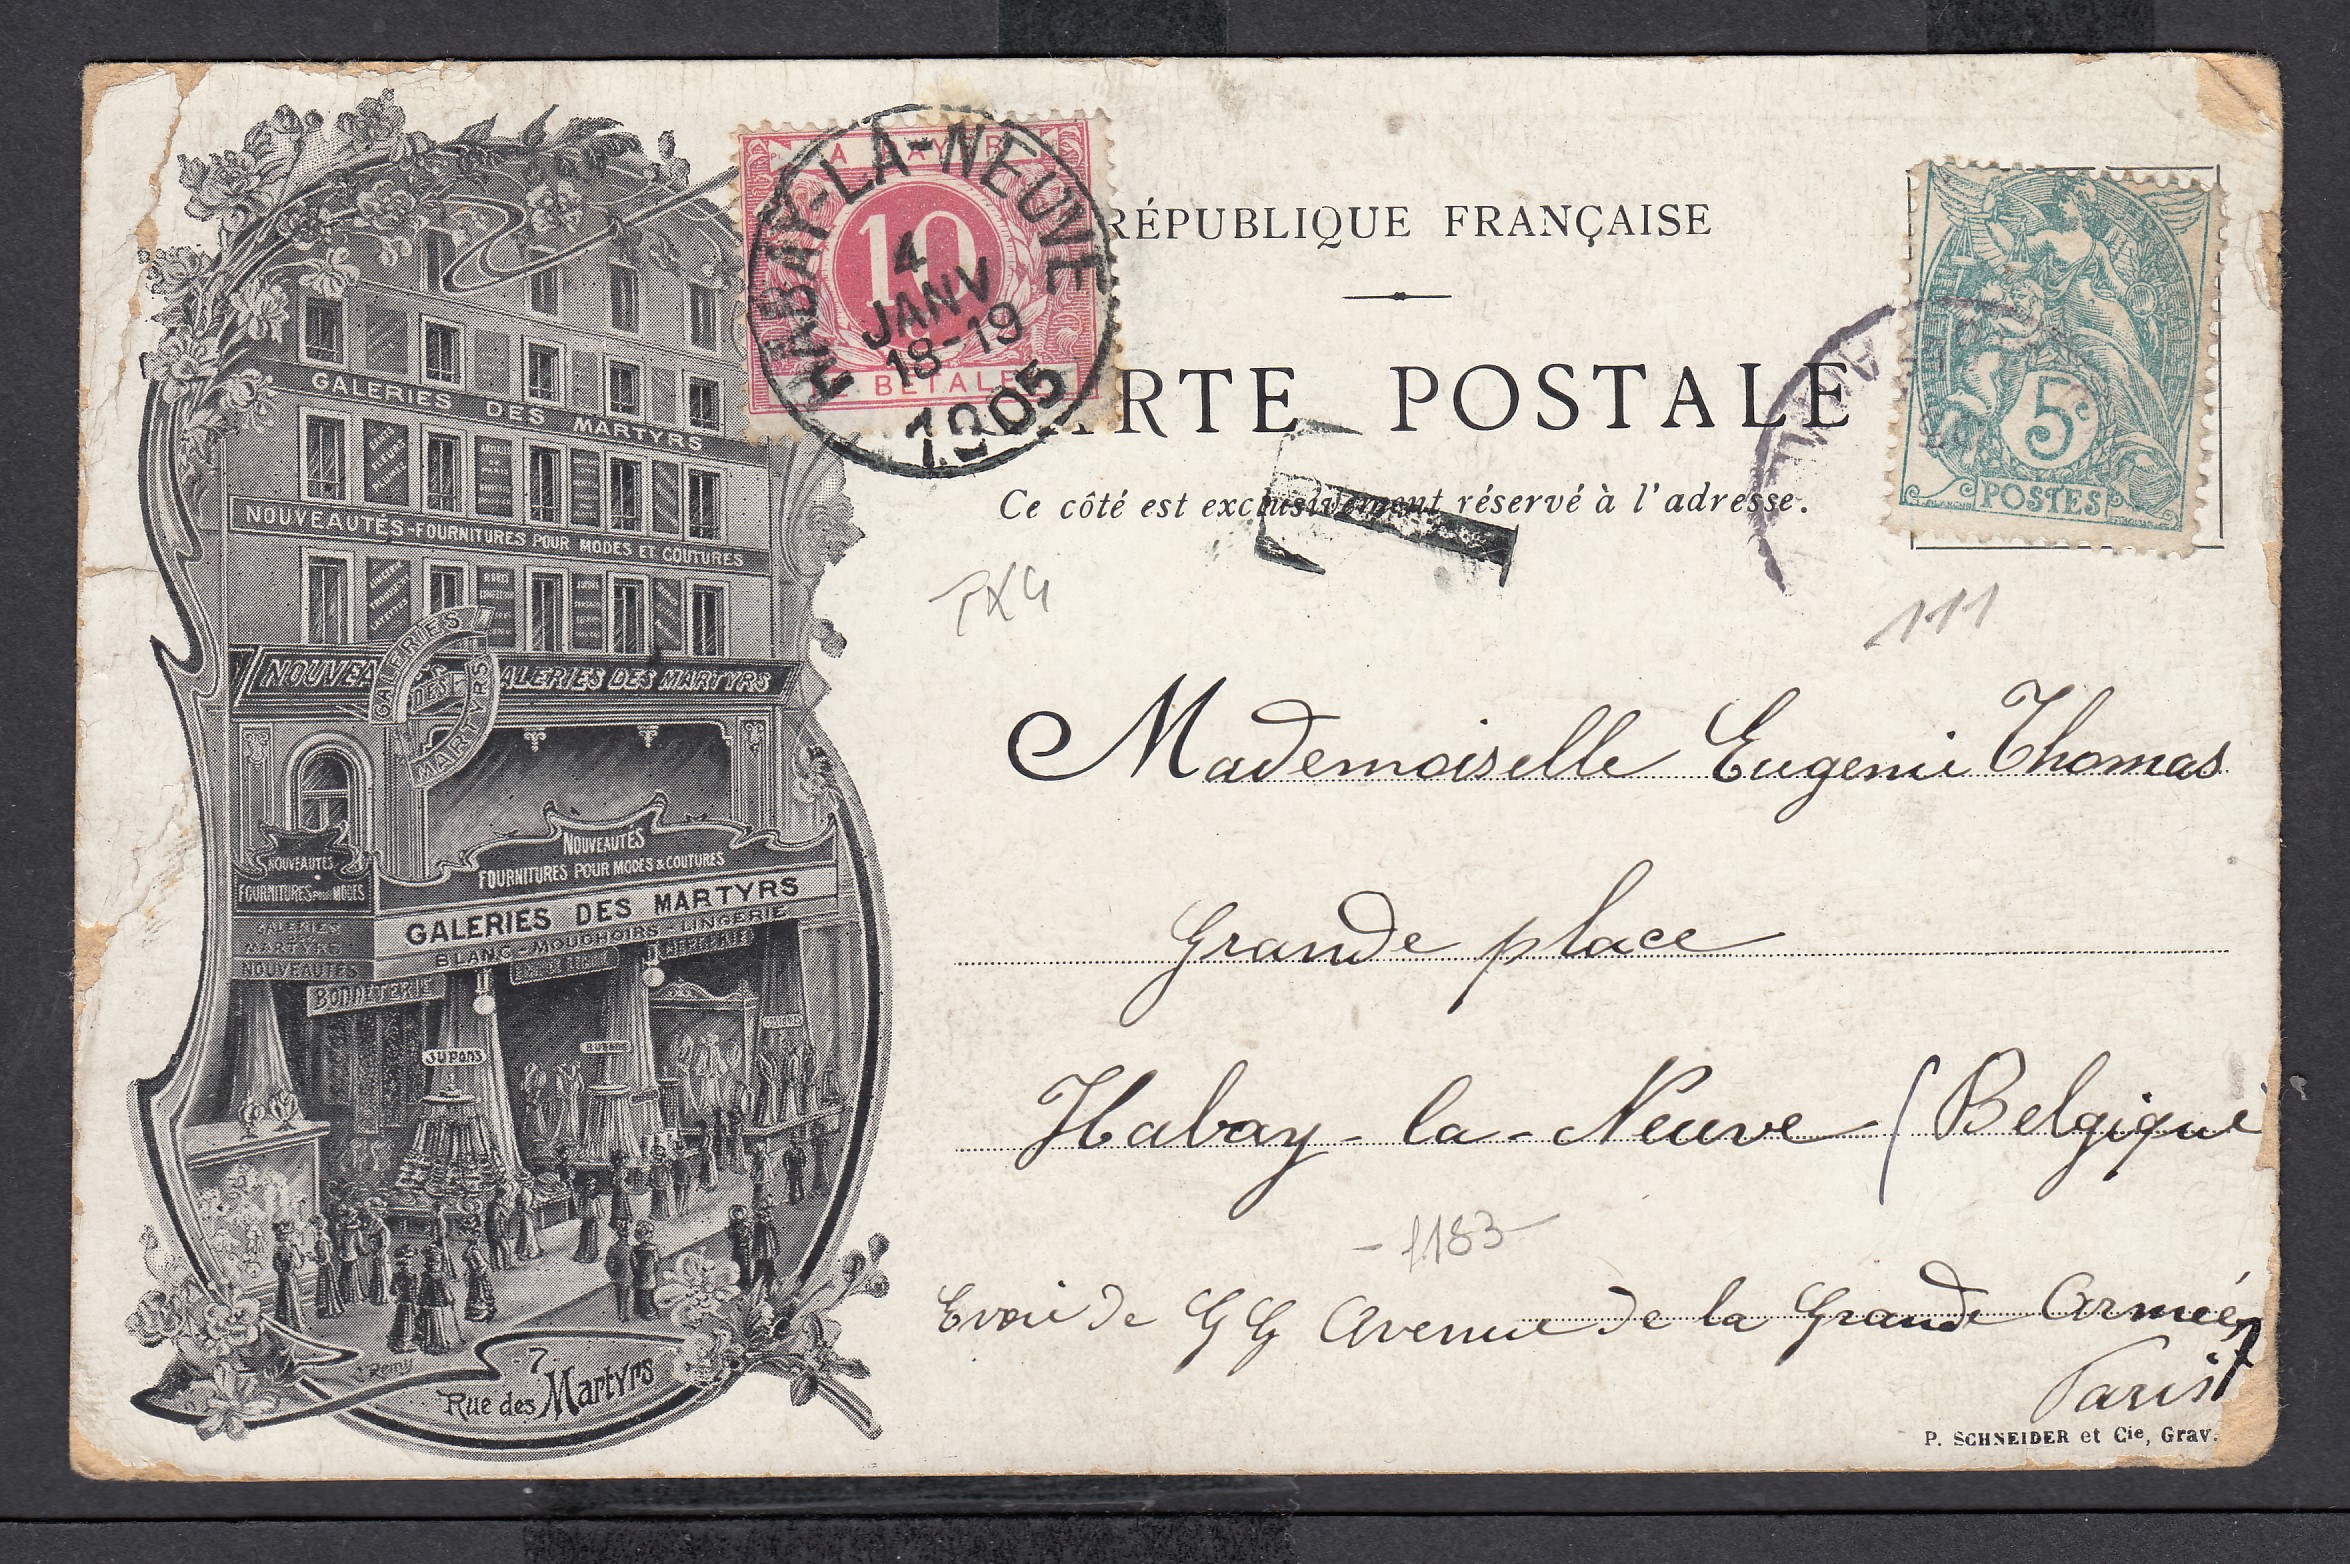 RÉPUBLIQUE FRANÇAISE
RTE POSTALE
Ce côté est exclusivement réservé à l'adresse.
A PAYER
10
BETALE
HABAY-LA-NEUVE
4
JANV
18-19
1905
5c
POSTES
T
TX4
111
Mademoiselle Eugenie Thomas
Grande place
Habay-la-Neuve (Belgique
1183
Evoi de GG Avenue de la Grande Armée, 7
Paris
P. SCHNEIDER et Cie, Grav.
GALERIES DES MARTYRS
SANTÉ
FLEURS
PLUMES
NOUVEAUTÉS-FOURNITURES POUR MODES ET COUTURES
LINGERIE
LAYETTES
NOUVEA
ALERIES DES MARTYRS
GALERIES
DES
MARTYRS
NOUVEAUTÉS
FOURNITURES POUR MODES & COUTURES
NOUVEAUTÉS
FOURNITURES POUR MODES
GALERIES DES MARTYRS
BLANC-MOUCHOIRS-LINGERIE
GALERIES
MARTYRS
NOUVEAUTÉS
BONNETERIE
JUPONS
Remy
7
Rue des Martyrs